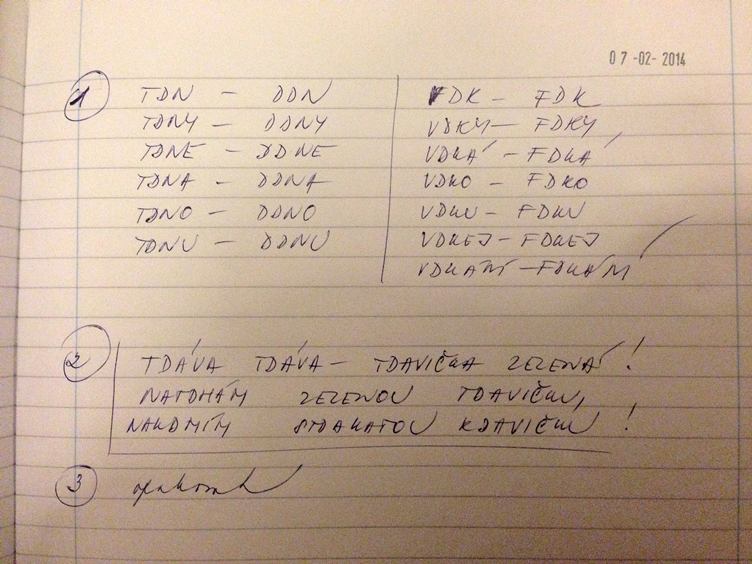 07-02-2014
1 TDN - DDN
TDNY - DDNY
TDNE - DDNE
TDNA - DDNA
TDNO - DDNO
TDNU - DDNU
VDK - FDK
VDKY - FDKY
VDKÁ - FDKÁ
VDKO - FDKO
VDKU - FDKU
VDKEJ - FDKEJ
VDKÁNÍ - FDKÁNÍ
2 TDÁVA TDÁVA - TDAVIČKA ZELENÁ!
NATDHÁM ZELENOU TDAVIČKU,
NAKDMÍM STDAKATOU KDAVIČKU!
3 opakovat